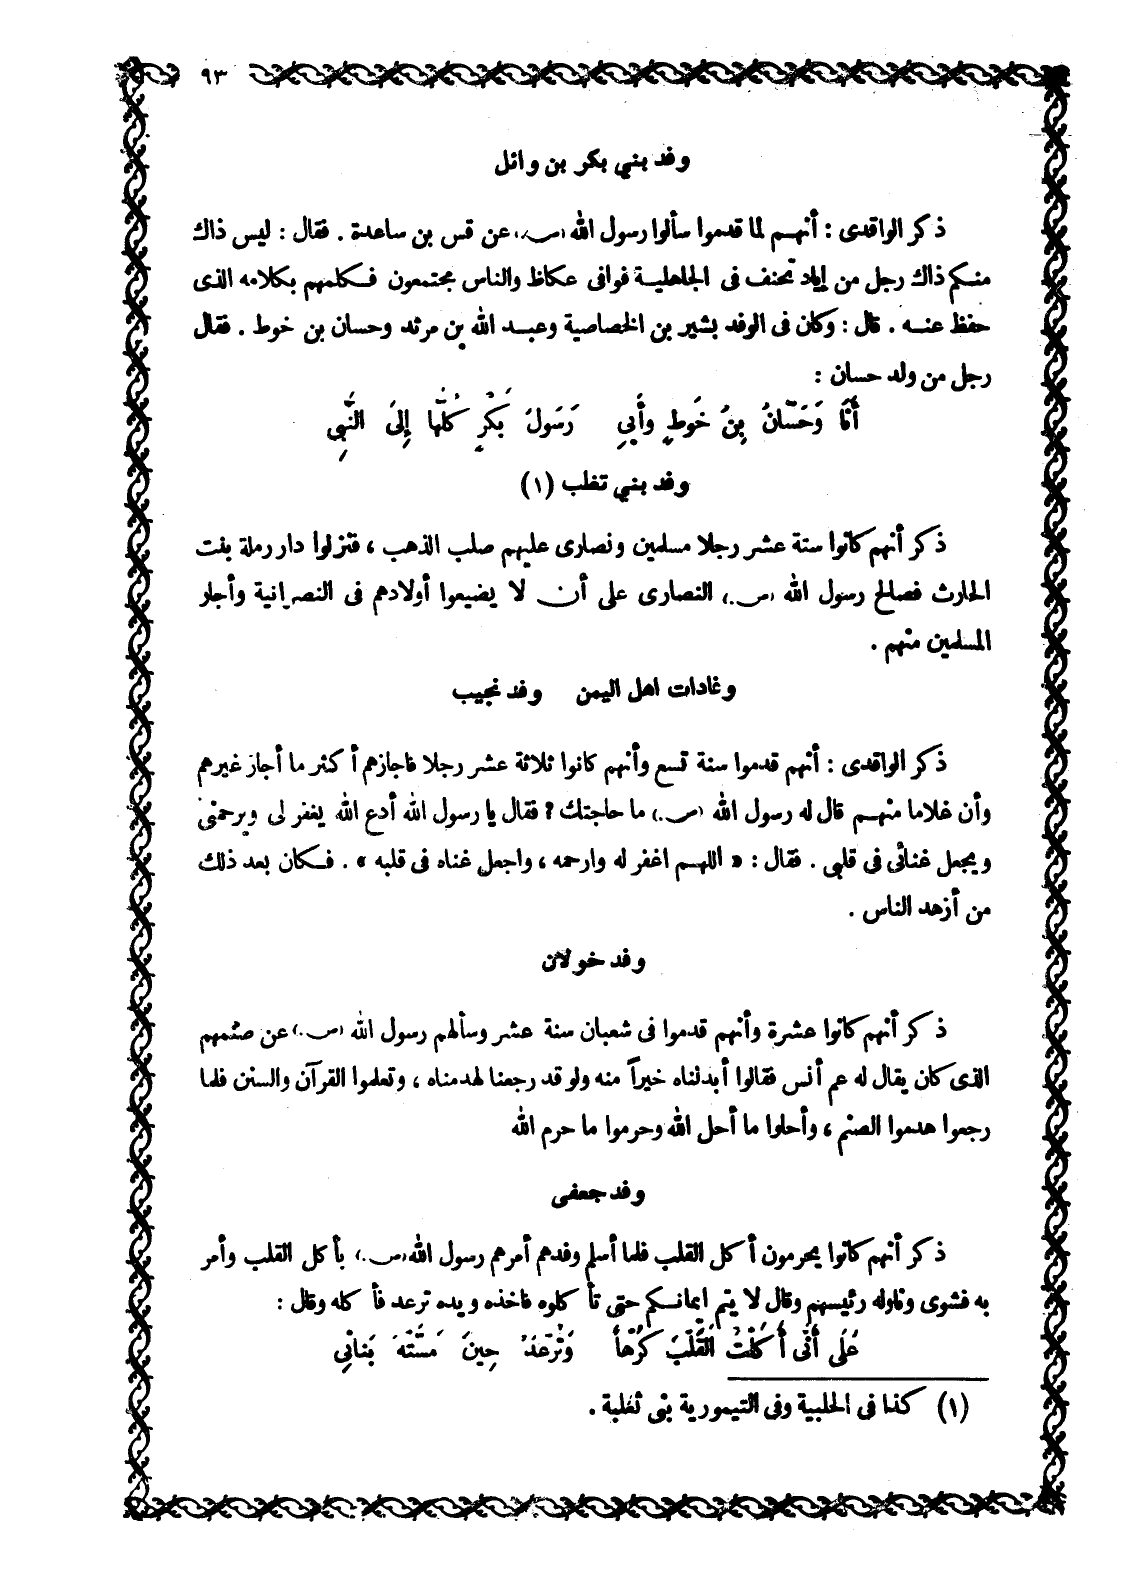 ٩٣
وفد بني بكر بن وائل
ذكر الواقدى : أنهم لما قدموا سألوا رسول الله (ص) عن قس بن ساعدة . فقال : ليس ذاك
منكم ذاك رجل من إياد تحنف فى الجاهلية فوافى عكاظ والناس مجتمعون فكلمهم بكلامه الذى
حفظ عنه . قال : وكان فى الوفد بشير بن الخصاصية وعبد الله بن مرثد وحسان بن خوط . فقال
رجل من ولد حسان :
أَنَا وَحَسَّانُ بِنُ خَوطٍ وأَبِي رَسَولُ بَكْرٍ كُلّها إِلىَ النَّبِي
وفد بني تغلب (١)
ذكر أنهم كانوا ستة عشر رجلا مسلمين ونصارى عليهم صلب الذهب ، فنزلوا دار رملة بنت
الحارث فصالح رسول الله (ص) النصارى على أن لا يضيعوا أولادهم فى النصرانية وأجار
المسلمين منهم .
وفادات اهل اليمن وفد نجيب
ذكر الواقدى : أنهم قدموا سنة تسع وأنهم كانوا ثلاثة عشر رجلا فاجازهم أكثر ما أجاز غيرهم
وأن غلاما منهم قال له رسول الله (ص) ما حاجتك ? فقال يا رسول الله أدع الله يغفر لى ويرحمنى
ويجعل غنائى فى قلبى . فقال : « اللهم اغفر له وارحمه ، واجعل غناه فى قلبه » . فكان بعد ذلك
من أزهد الناس .
وفد خولان
ذكر أنهم كانوا عشرة وأنهم قدموا فى شعبان سنة عشر وسألهم رسول الله (ص) عن صنمهم
الذى كان يقال له عم أنس فقالوا أبدلناه خيراً منه ولو قد رجعنا لهدمناه ، وتعلموا القرآن والسنن فلما
رجعوا هدموا الصنم ، وأحلوا ما أحل الله وحرموا ما حرم الله
وفد جعفى
ذكر أنهم كانوا يحرمون أكل القلب فلما أسلم وفدهم أمرهم رسول الله (ص) بأكل القلب وأمر
به فشوى وناوله رئيسهم وقال لا يتم ايمانكم حتى تأكلوه فاخذه ويده ترعد فأكله وقال :
عَلَى أَنّى أَكَلْتُ القَلْبَ كَرْهاً وَتُرْعَدُ حِينَ مَسَّتْهُ بَنَانْيِ
(١) كذا فى الحلبية وفى التيمورية بنى ثعلبة .